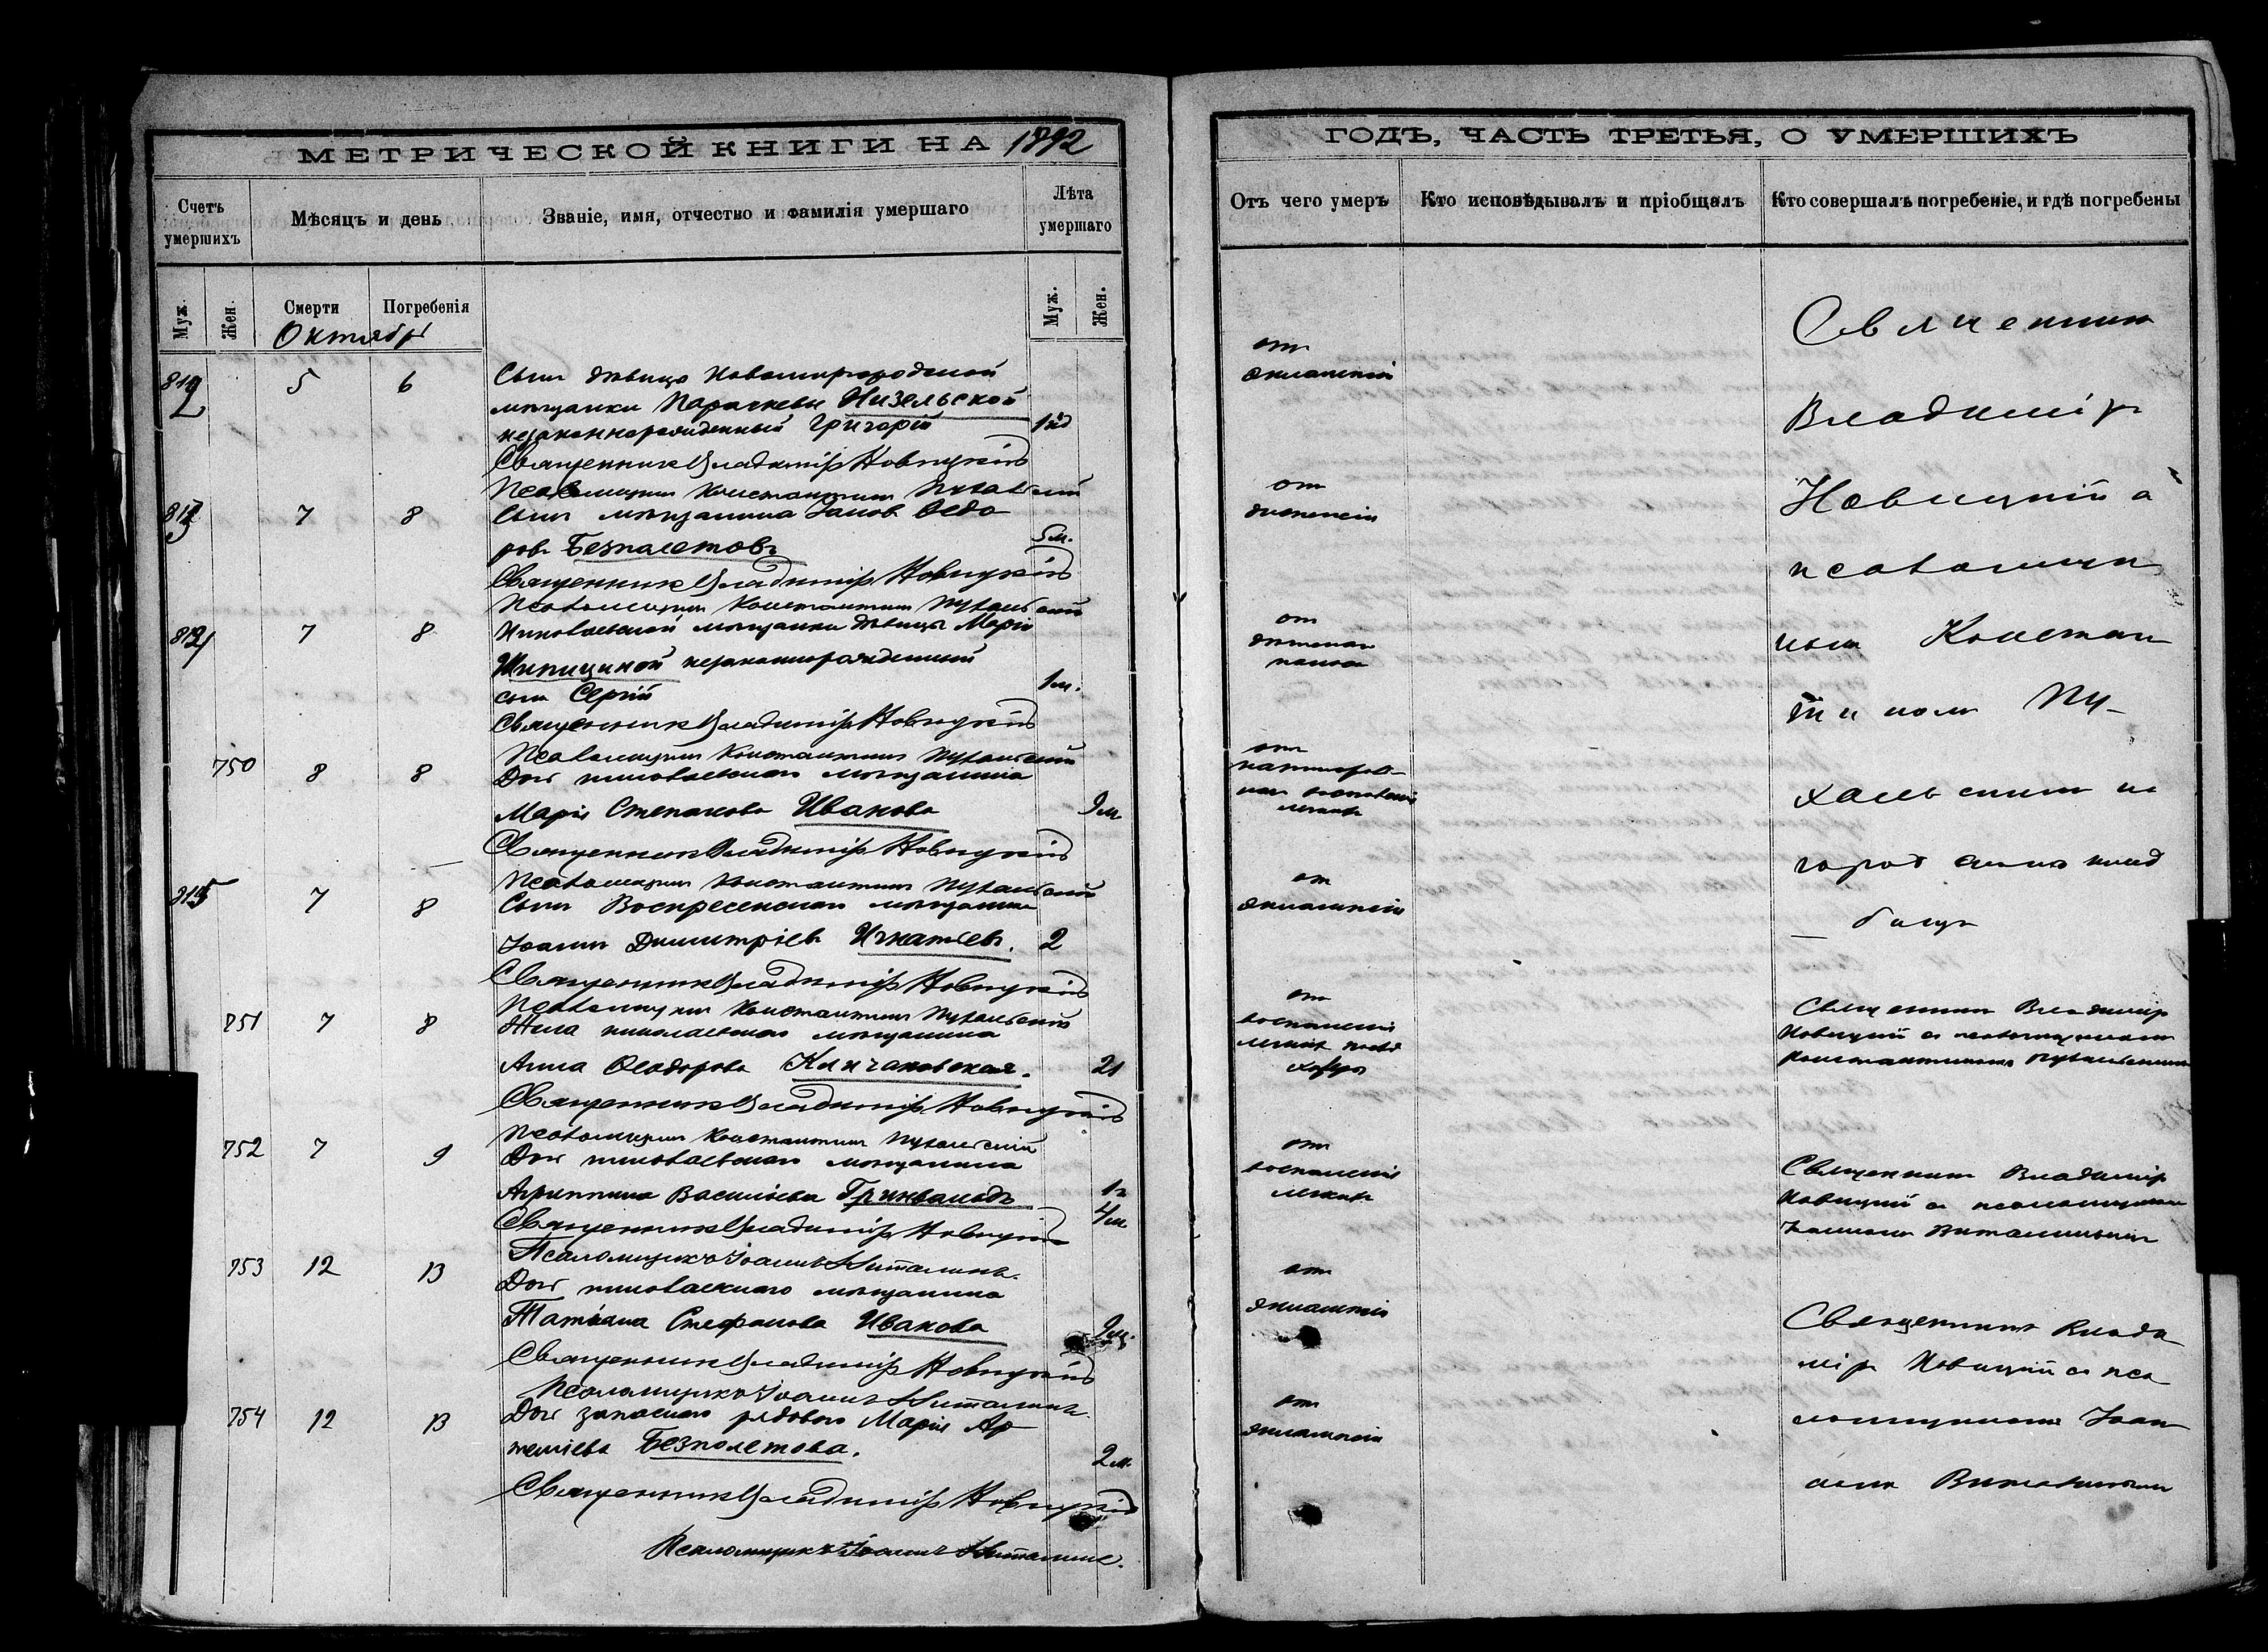 МЕТРИЧЕСКОЙ КНИГИ НА 1892
Счетъ умершихъ
Мѣсяцъ и день
Званіе, имя, отчество и фамилія умершаго
Лѣта умершаго
Муж.
Жен.
Смерти
Погребенія
Муж.
Жен.
Октябрь
812 5 6 Сынъ дѣвицы Новомиргородской
мѣщанки Параскевы Низельской
незаконнорожденный Григорій
Священникъ Владиміръ Новицкій
Псаломщикъ Константинъ
813 7 8 Сынъ мѣщанина Іаковъ Ѳедо
ровъ Безпалетовъ 5 м.
Священникъ Владиміръ Новицкій
Псаломщикъ Константинъ
7 8 Николаевской мѣщанки дѣвицы Маріи
незаконнорожденный
сынъ Сергій 1 м.
Священникъ Владиміръ Новицкій
Псаломщикъ Константинъ
750 8 8 Дочь николаевскаго мѣщанина
Марія Степанова Иванова 9 м
Священникъ Владиміръ Новицкій
Псаломщикъ Константинъ
815 7 8 Сынъ Воскресенскаго мѣщанина
Іоаннъ Димитріевъ Игнатьевъ. 2
Священникъ Владиміръ Новицкій
Псаломщикъ Константинъ
751 7 8 Жена николаевскаго мѣщанина
Анна Ѳеодорова 21
Священникъ Владиміръ Новицкій
Псаломщикъ Константинъ
752 7 9 Дочь николаевскаго мѣщанина
Агриппина Васильева Гринвальдъ 1 г
4 м
Священникъ Владиміръ Новицкій
Псаломщикъ Іоаннъ
753 12 13 Дочь николаевскаго мѣщанина
Татіана Стефанова Иванова 9 м.
Священникъ Владиміръ Новицкій
Псаломщикъ Іоаннъ
754 12 13 Дочь запаснаго рядового Марія Ар
теміева Безполетова. 2 м.
Священникъ Владиміръ Новицкій
Псаломщикъ Іоаннъ
ГОДЪ, ЧАСТЬ ТРЕТЬЯ, О УМЕРШИХЪ
Отъ чего умеръ
Кто исповѣдывалъ и пріобщалъ
Кто совершалъ погребеніе, и гдѣ погребены
отъ
эклампсіи
отъ
отъ
отъ
воспаленія
легкихъ
отъ
эклампсіи
отъ
воспаленія
легкихъ
отъ
воспаленія
легкихъ
отъ
эклампсіи
отъ
эклампсіи
Священникъ
Владиміръ
Новицкій съ
псаломщи
комъ Констан
тиномъ Пу-
хальскимъ на
город клад
бищѣ
Священникъ Владиміръ
Новицкій съ псаломщикомъ
Константиномъ Пухальскимъ
Священникъ Владиміръ
Новицкій съ псаломщикомъ
Іоанномъ
Священникъ Влади
міръ Новицкій съ пса
ломщикомъ Іоан
номъ